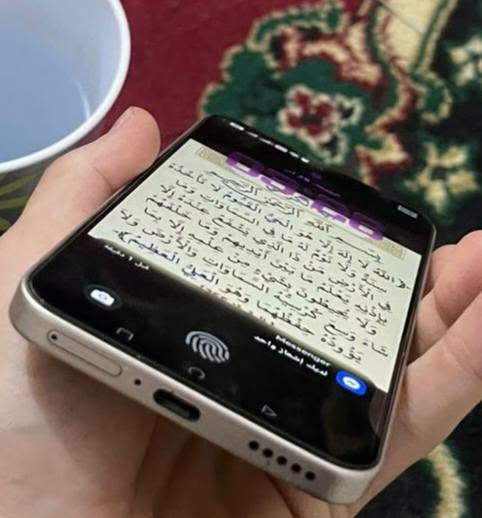 بسم الله الرحمن الرحيم
الله لا إله إلا هو الحي القيوم لا تأخذه
سنة ولا نوم له ما في السماوات وما
في الأرض من ذا الذي يشفع عنده إلا
بإذنه يعلم ما بين أيديهم وما خلفهم
ولا يحيطون بشيء من علمه إلا بما
شاء وسع كرسيه السماوات والأرض ولا
يؤوده حفظهما وهو العلي العظيم
Messenger
لديك إشعار واحد
قبل 1 دقيقة